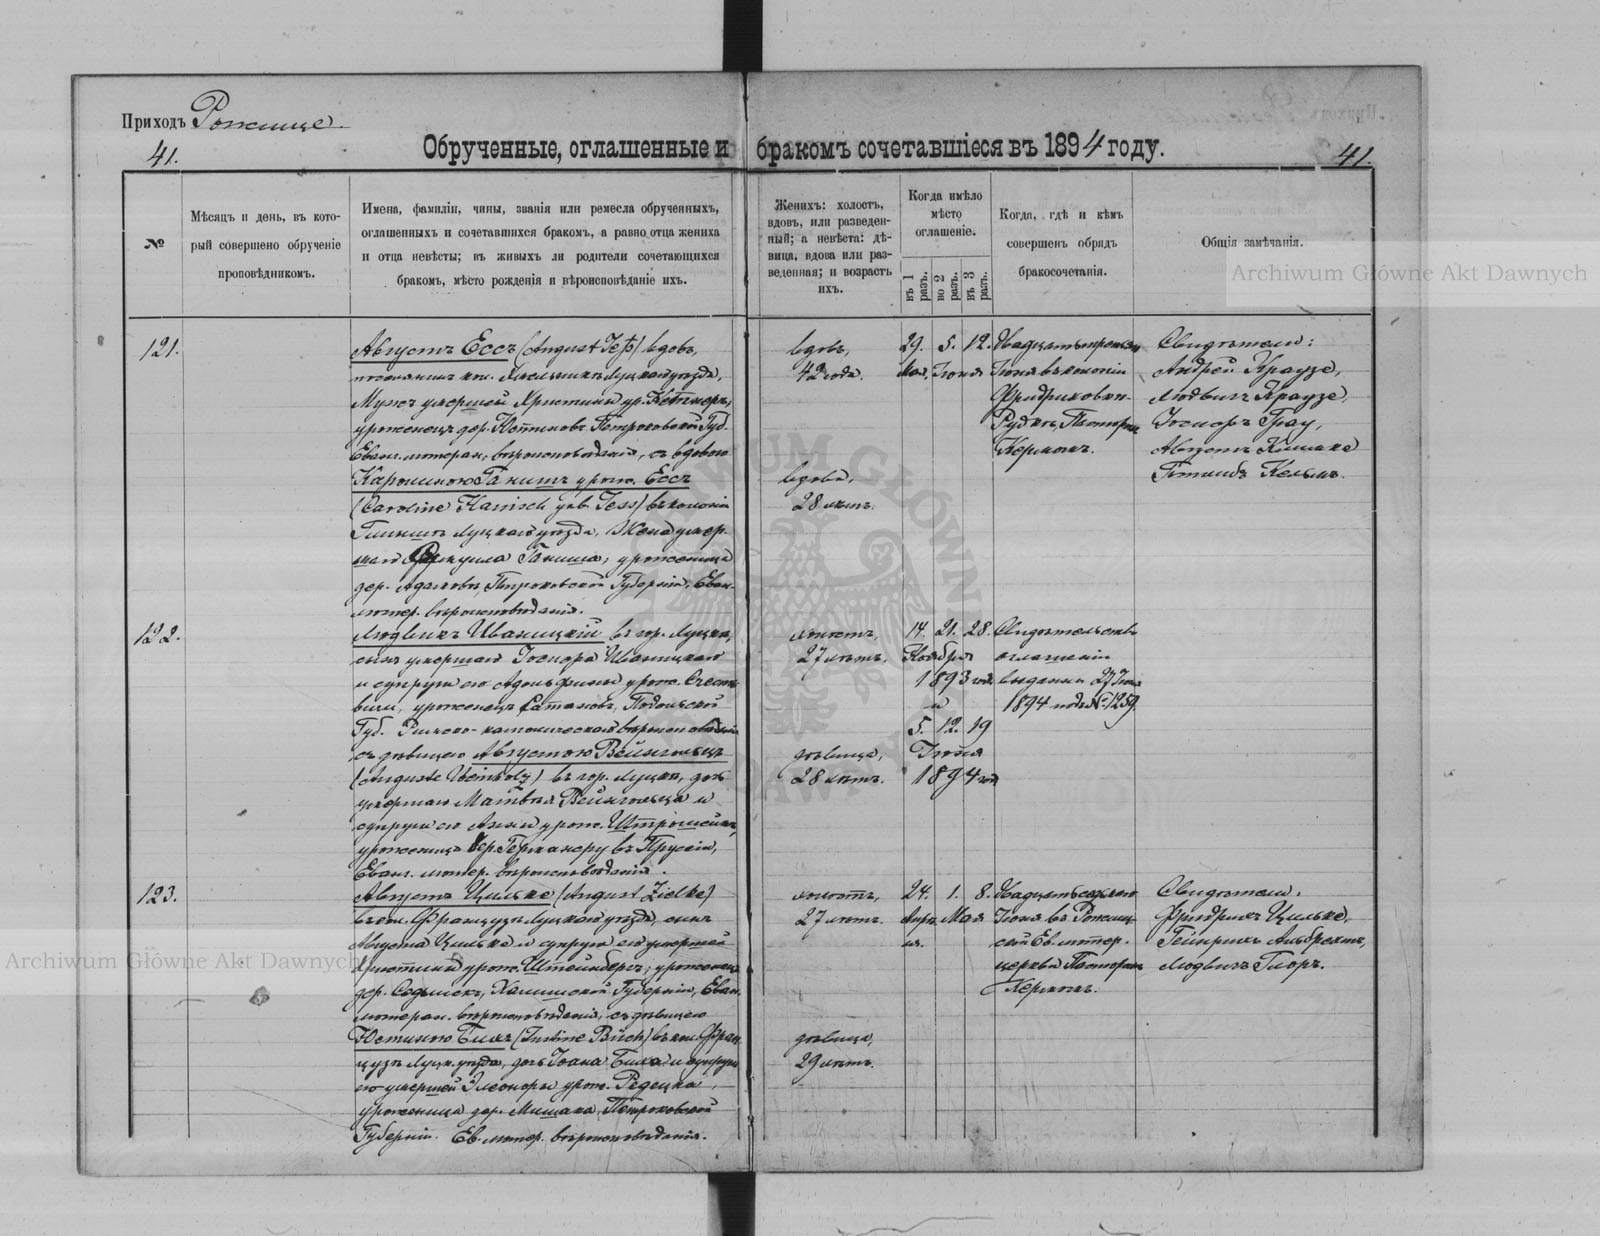 Приходъ Рожище.
41.
Обрученные, оглашенные и бракомъ сочетавшіеся въ 1894 году.
41.
№
Мѣсяцъ и день, въ кото-
рый совершено обрученіе
проповѣдникомъ.
Имена, фамиліи, чины, званія или ремесла обрученныхъ,
оглашенныхъ и сочетавшихся бракомъ, а равно отца жениха
и отца невѣсты; въ живыхъ ли родители сочетающихся
бракомъ, мѣсто рожденія и вѣроисповѣданіе ихъ.
Женихъ: холостъ,
вдовъ, или разведен-
ный; а невѣста: дѣ-
вица, вдова или раз-
веденная; и возрастъ
ихъ.
Когда имѣло
мѣсто
оглашеніе.
въ 1 разъ.
во 2 разъ.
въ 3 разъ.
Когда, гдѣ и кѣмъ
совершенъ обрядъ
бракосочетанія.
Общія замѣчанія.
121.
Августъ Ессъ (August Jeß) вдовъ,
поселянинъ кол. Луцкаго уѣзда,
Мужъ умершей Христины ур.
уроженецъ дер. Петроковской Губ.
Еванг. лютеран. вѣроисповѣданія, съ вдовою
Каролиною Ганишъ урож. Ессъ
(Caroline Hanisch geb. Jess) въ колоніи
Луцкаго уѣзда, Жена умер-
шаго Ганиша, уроженица
дер. Адамовъ, Петроковской Губерніи, Еван.
лютер. вѣроисповѣданія.
вдовъ,
42 года.
вдова,
28 лѣтъ.
29. 5. 12.
Мая. Іюня
Двадцать третьяго
Іюня въ колоніи
Фридриховкѣ-
Рудкѣ, Пасторъ
Керномъ.
Свидѣтели:
Андрей Краузе,
Людвигъ Краузе,
Іосифъ Грау,
Августъ
Готлибъ Кельмъ.
122.
Людвикъ Иваницкій въ гор. Луцкѣ,
сынъ умершаго Іосифа Иваницкаго
и супруги его Адольфины урож.
уроженецъ Сатановъ, Подольской
Губ. Римско-католическаго вѣроисповѣданія
съ дѣвицею Августою Вейнгольцъ
(Auguste Weinholz) въ гор. Луцкѣ, дочь
умершаго Матвѣя Вейнгольца и
супруги его Анны урож.
уроженица въ Пруссіи,
Еванг. лютер. вѣроисповѣданія.
холостъ,
27 лѣтъ.
дѣвица,
28 лѣтъ.
14. 21. 28.
Ноября
1893 год.
и
5. 12. 19
Іюня
1894 год
Свидѣтельство
оглашенія
выданы 27 Іюня
1894 подъ № 1259.
123.
Августъ Цильке (August Zielke)
въ кол. Французъ Луцкаго уѣзда, сынъ
Августа Цильке и супруги его умершей
Христины урож. Штейнбергъ, уроженецъ
дер. Калишской Губерніи, Еван.
лютеран. вѣроисповѣданія, съ дѣвицею
Юстиною Бихъ (Justine Büch) въ кол. Фран-
цузъ Луцк. уѣзда, дочь Іоана Биха и супруги
его умершей Элеоноры урож. Редецка,
уроженица дер. Петроковской
Губерніи. Ев. лютер. вѣроисповѣданія.
холостъ,
27 лѣтъ.
дѣвица,
29 лѣтъ.
24. 1. 8.
Апрѣ- Мая
ля.
Двадцать седьмаго
Іюня въ Рожищ-
ской Ев. лютер.
церкви Пасторъ
Керномъ.
Свидѣтели:
Фридрихъ Цильке,
Гейнрихъ Альбрехтъ,
Людвигъ
Archiwum Główne Akt Dawnych
Archiwum Główne Akt Dawnych